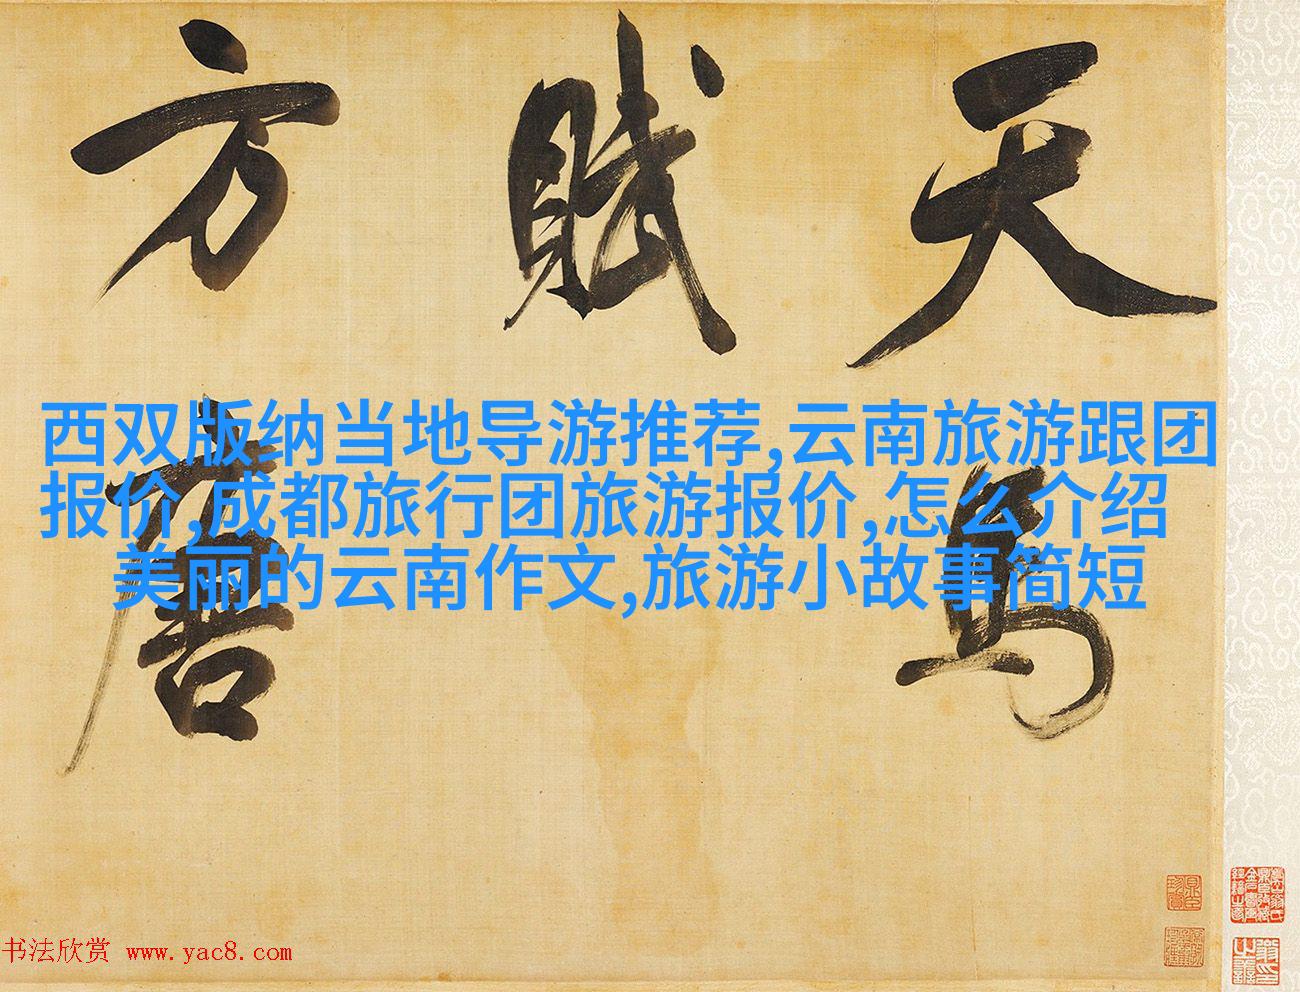 天馬
賦
方唐
西双版纳当地导游推荐,云南旅游跟团
报价,成都旅行团旅游报价,怎么介绍
美丽的云南作文,旅游小故事简短
书法欣赏 www.yac8.com